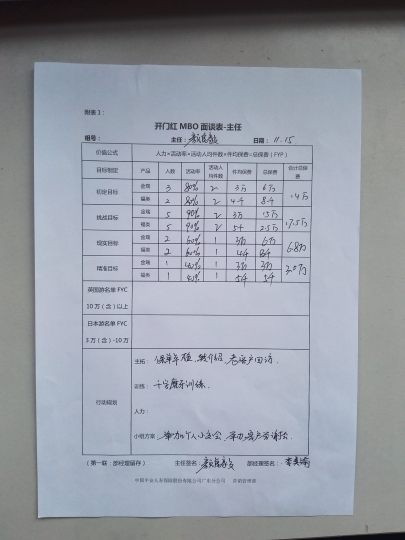 附表1：
开门红 MBO 面谈表-主任
组号： 主任： 日期： 11.15
价值公式 人力×活动率×活动人均件数×件均保费=总保费（FYP）
目标制定 产品 人数 活动率 活动人均件数 件均保费 总保费 合计总保费
初定目标 金瑞 3 80% 2 3万 6万
福类 2 80% 2 4千 8千
挑战目标 金瑞 5 90% 2 3万 15万 17.5万
福类 5 90% 2 5千 2.5万
现实目标 金瑞 2 60% 1 3万 6万 6.8万
福类 2 60% 1 4千 8千
金瑞 1 40% 1 3万 3万
福类 1 40% 1 5千 5千
英国游名单 FYC
10 万（含）以上
日本游名单 FYC
3 万（含）-10万
行动规划
主拓： 保单年检，转介绍 老客户回访
训练： 千字展开训练
人力：
小组方案
（第一联：部经理留存） 主任签名： 部经理签名：
中国平安人寿保险股份有限公司广东分公司 营销管理部